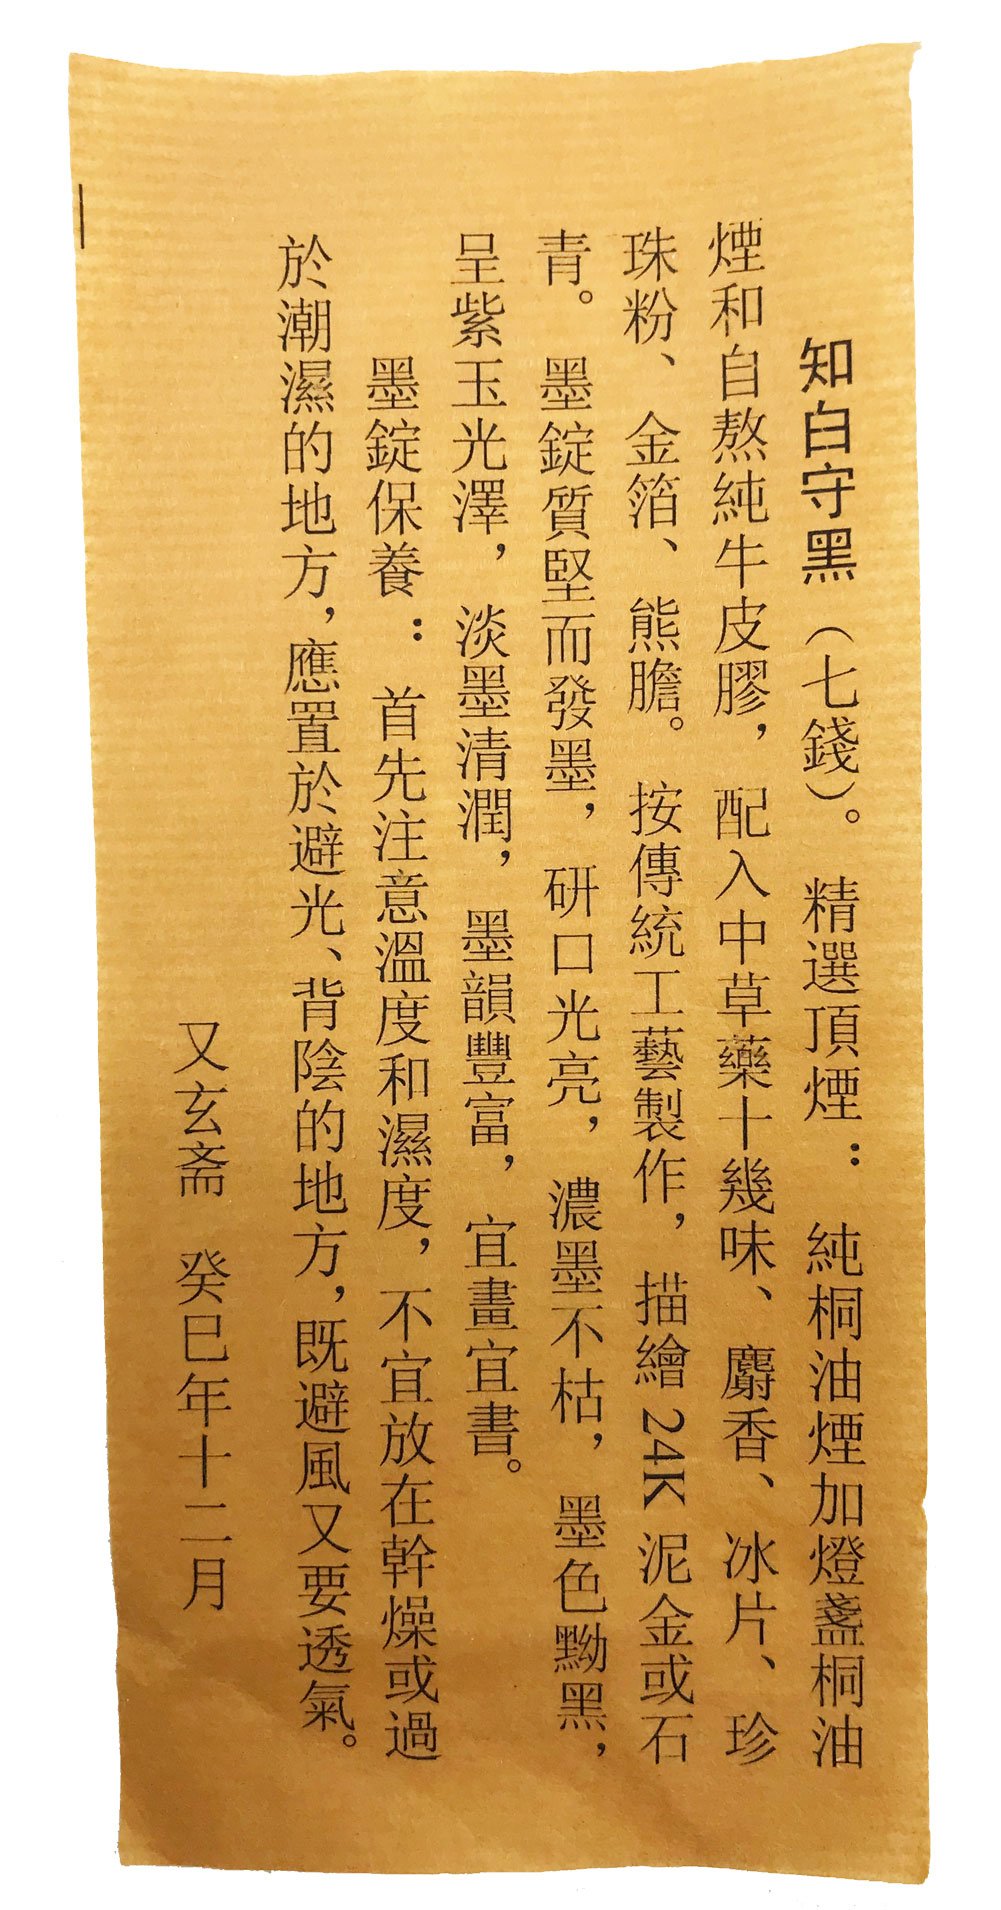 知白守黑（七錢）。精選頂煙：純桐油煙加燈盞桐油
煙和自熬純牛皮膠，配入中草藥十幾味、麝香、冰片、珍
珠粉、金箔、熊膽。按傳統工藝製作，描繪 24K 泥金或石
青。墨錠質堅而發墨，研口光亮，濃墨不枯，墨色黝黑，
呈紫玉光澤，淡墨清潤，墨韻豐富，宜畫宜書。
墨錠保養：首先注意溫度和濕度，不宜放在幹燥或過
於潮濕的地方，應置於避光、背陰的地方，既避風又要透氣。
又玄斋 癸巳年十二月